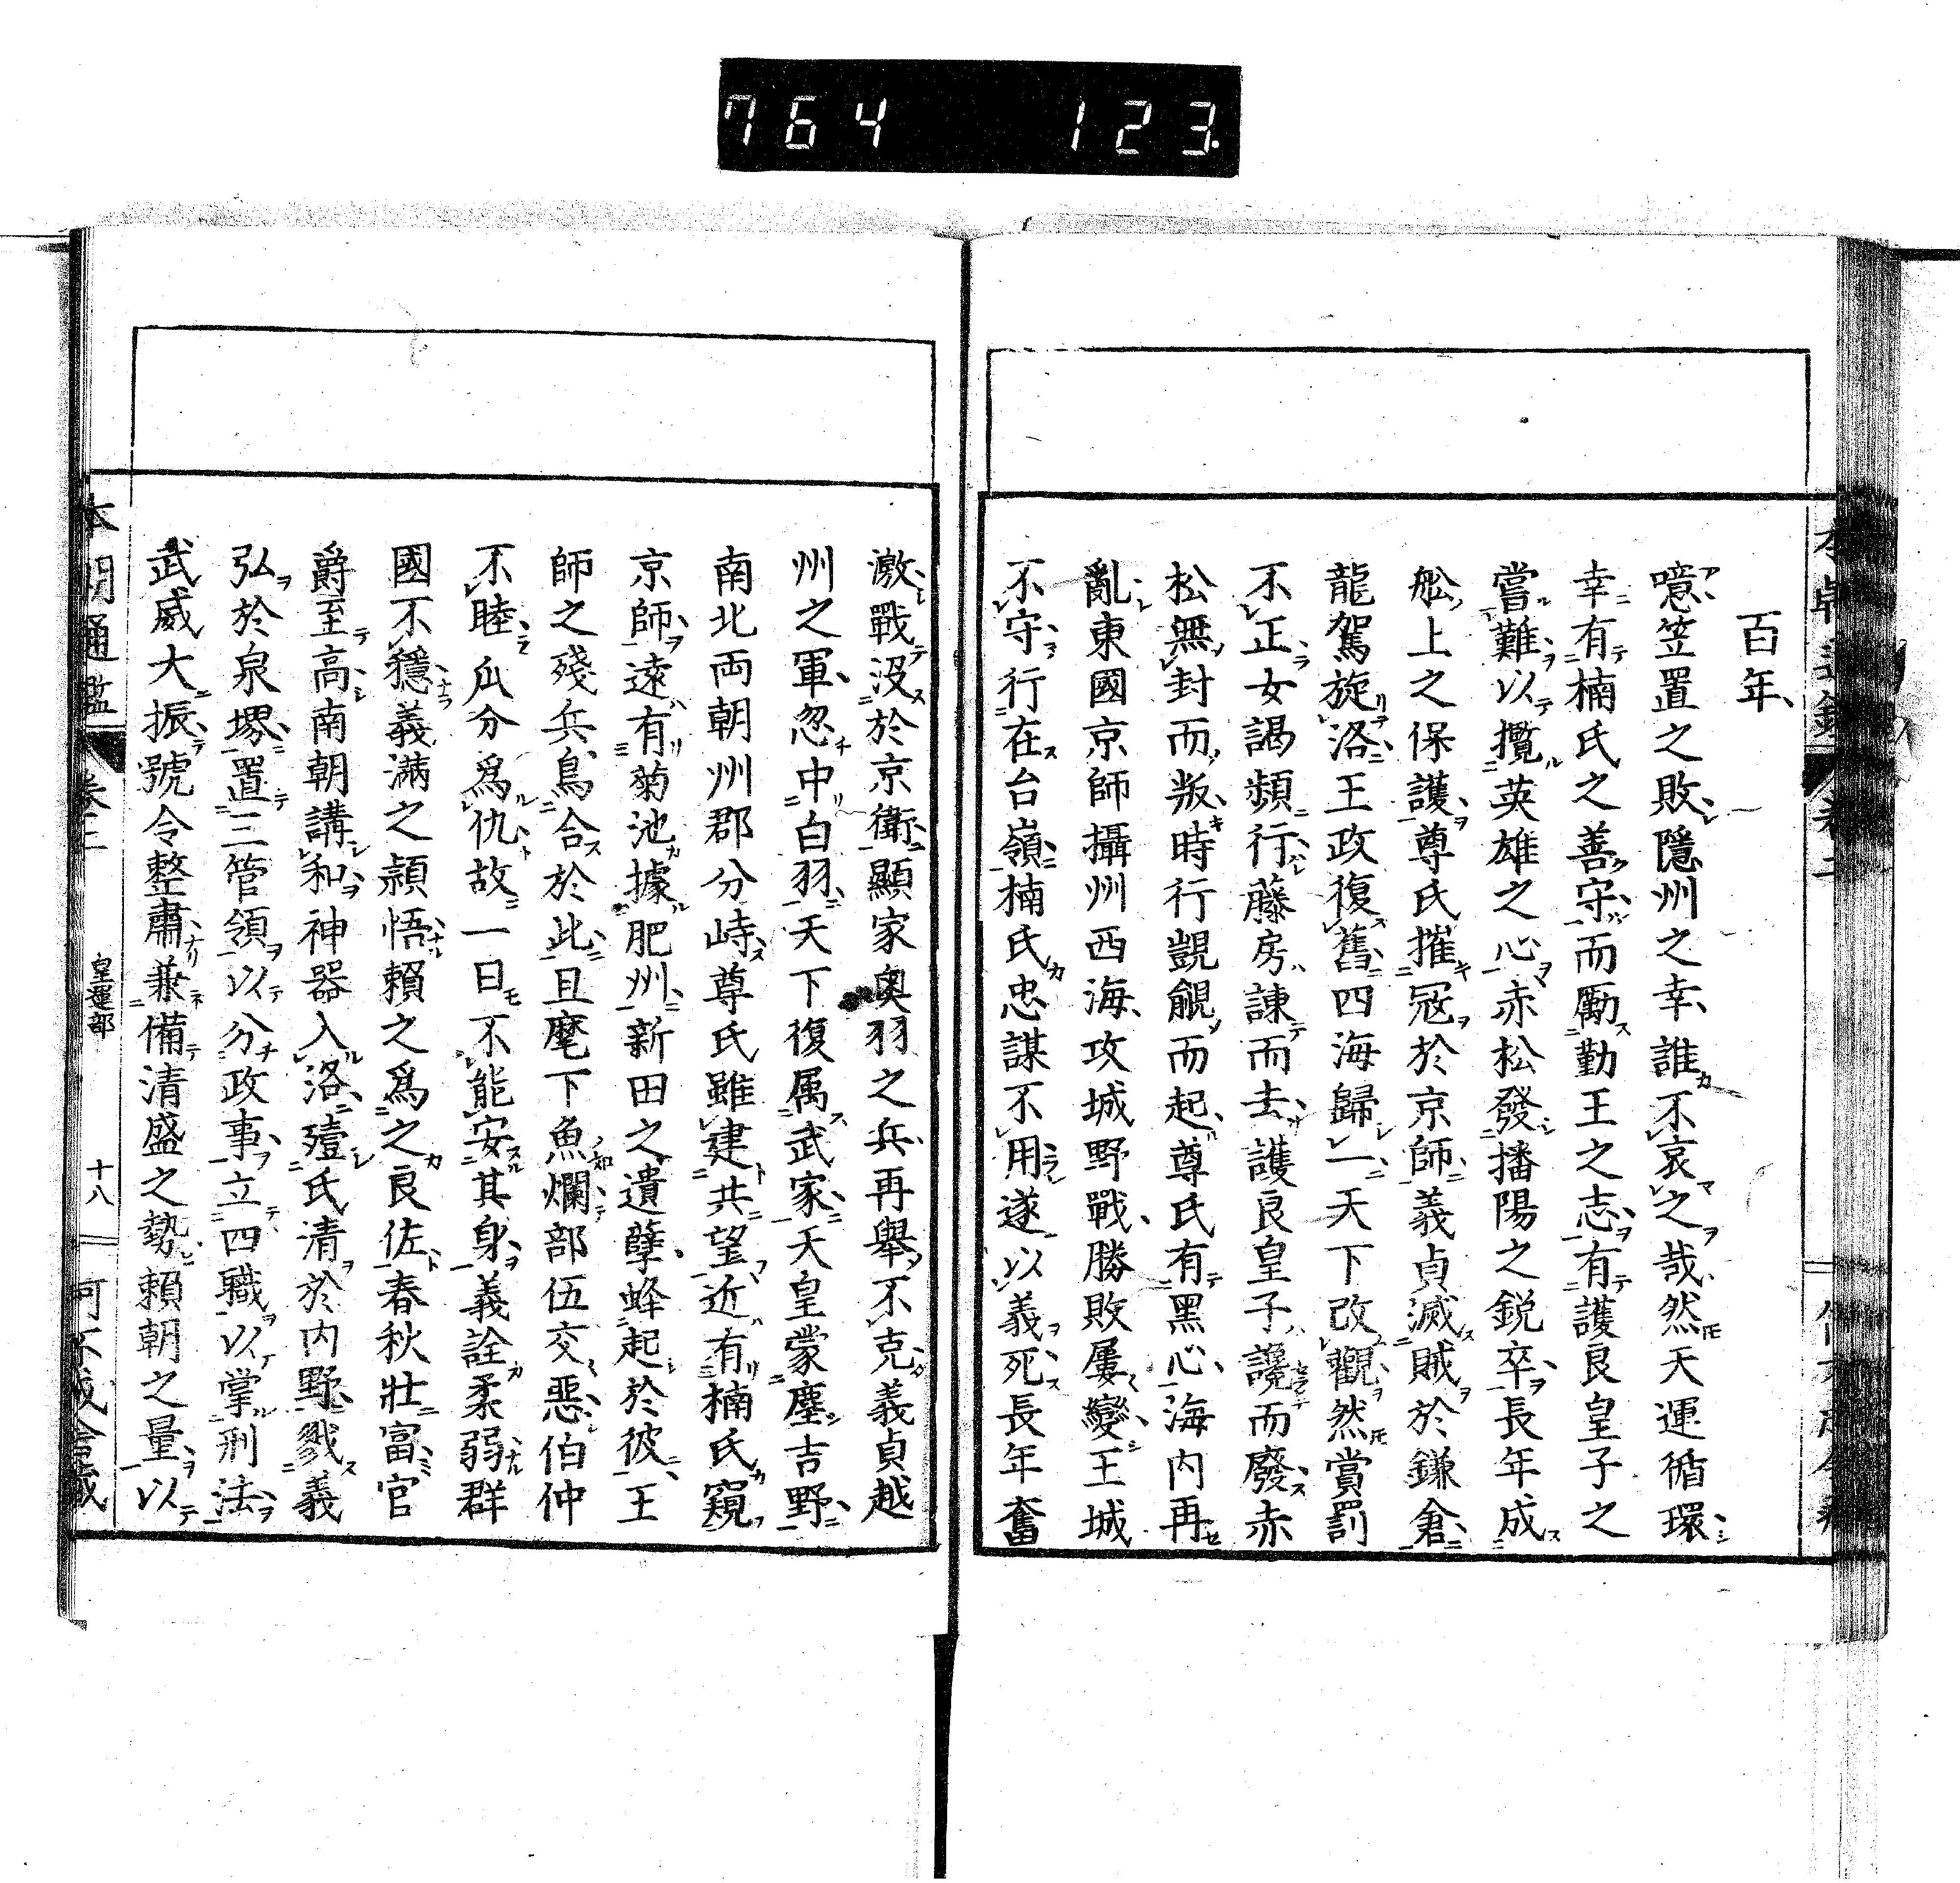 764 123
百年
噫笠置之敗隱州之幸誰不哀之哉然天運循環
幸有楠氏之善守而勵勤王之志有護良皇子之
嘗難以攬英雄之心赤松發播陽之鋭卒長年成
舩上之保護尊氏摧冦於京師義貞滅賊於鎌倉
龍駕旋洛王政復舊四海歸一天下改觀然賞罰
不正女謁頻行藤房諫而去護良皇子讒而廢赤
松無封而叛時行覬覦而起尊氏有黑心海内再
亂東國京師攝州西海攻城野戰勝敗屢變王城
不守行在台嶺楠氏忠謀不用遂以義死長年奮
激戰沒於京衛顯家奧羽之兵再舉不克義貞越
州之軍忽中白羽天下復属武家天皇蒙塵吉野
南北両朝州郡分峙尊氏雖建共望近有楠氏窺
京師遠有菊池據肥州新田之遺孽蜂起於彼王
師之殘兵鳥合於此且麾下魚爛部伍交惡伯仲
不睦瓜分爲仇故一日不能安其身義詮柔弱群
國不穩義満之穎悟賴之爲之良佐春秋壯富官
爵至高南朝講和神器入洛殪氏清於内野戮義
弘於泉堺置三管領以分政事立四職以掌刑法
武威大振號令整肅兼備清盛之勢賴朝之量以
本朝通鑑 皇運部 十八